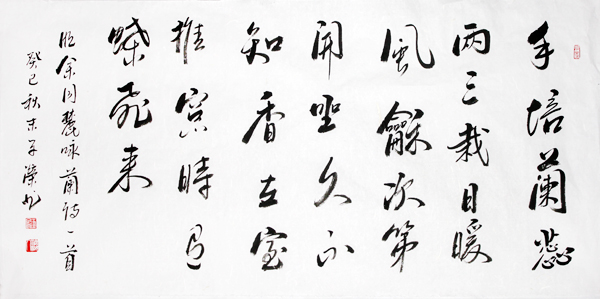 手培蘭蕊
两三栽日暖
風龢次第
開坐久不
知香在室
推窗時有
蝶飛来
余同麓咏蘭诗一首
癸巳秋末子榮书